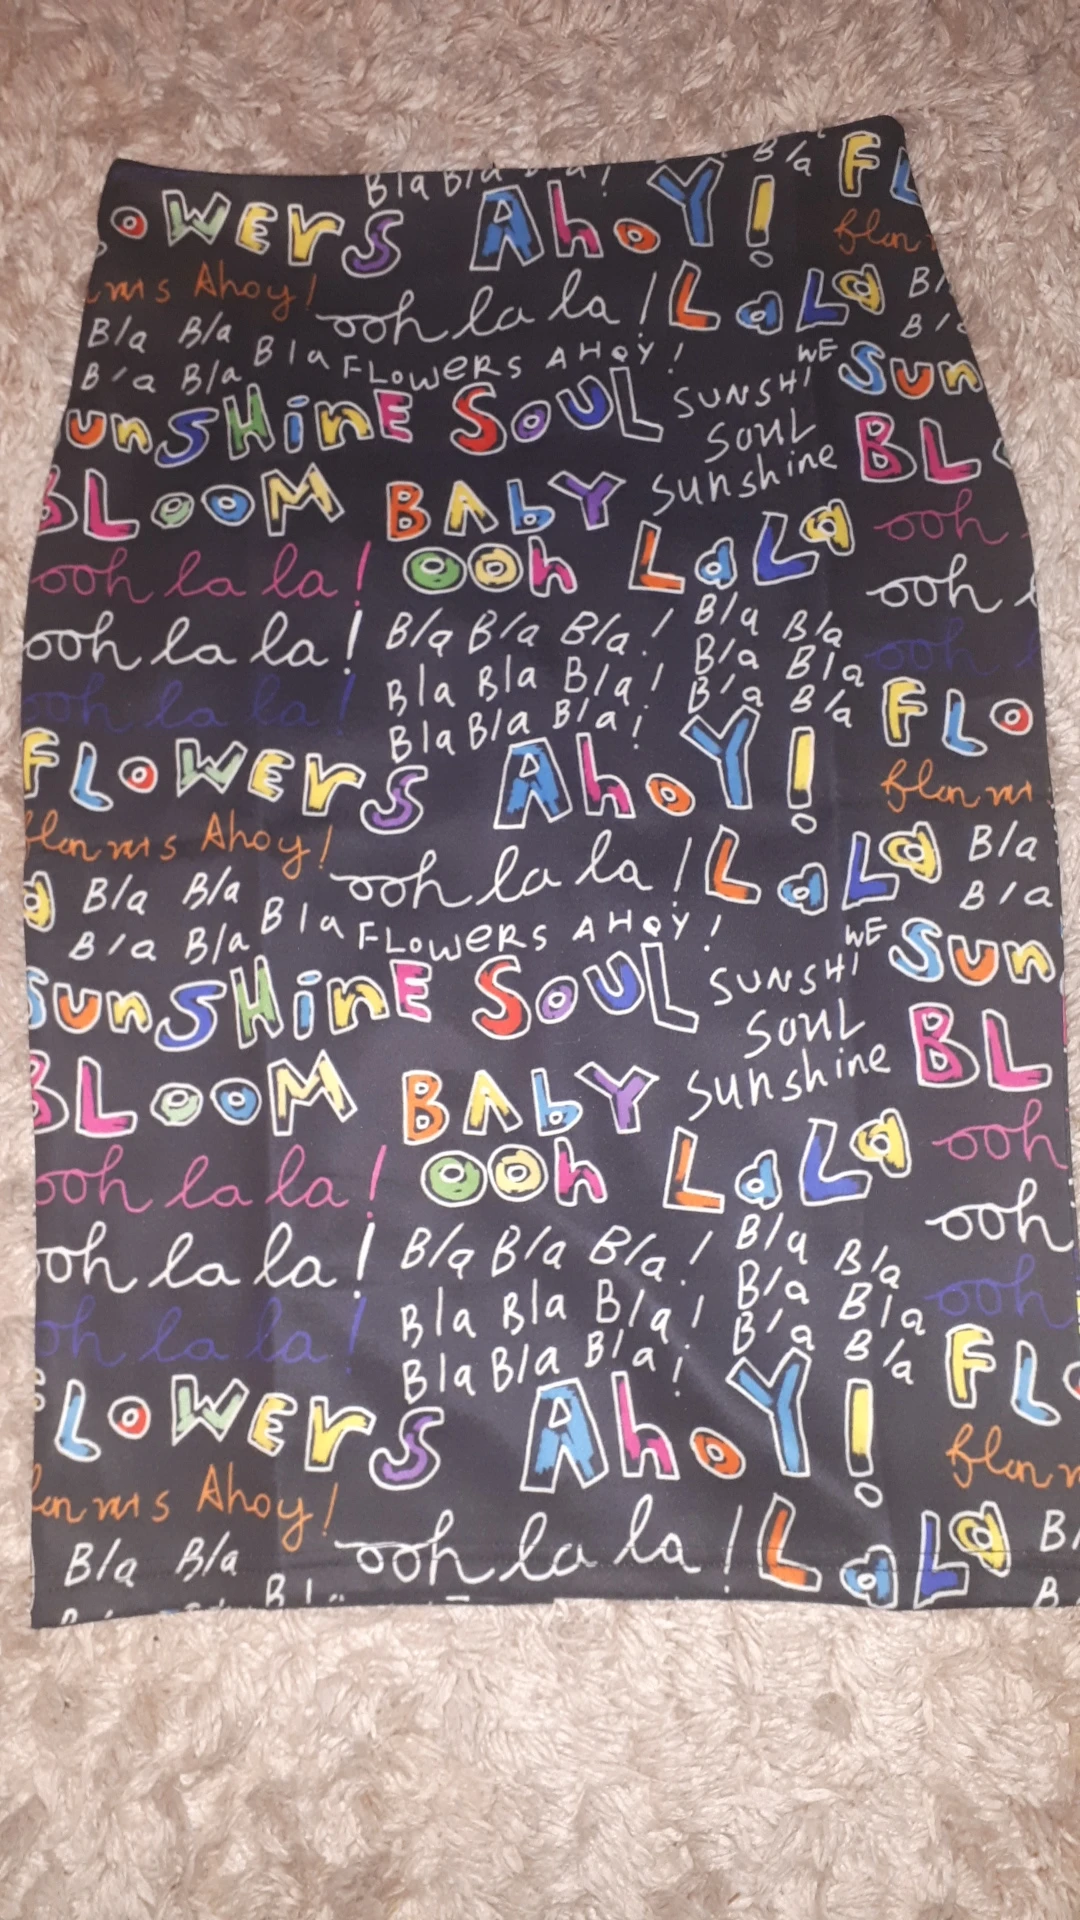 Bla Bla
Bla FL
OWErS AhoY!
Ahoy! ooh la la! LaLa
Bla Bla Bla FLOWERS AHOY! WE Sun
Bla Bla
unSHinE SOUL SUNSHI
SOUL BL
BLOOM BAbY sunshine
ooh la la! OOh LaLa ooh
ooh la la! Bla Bla Bla! Bla Bla ooh
ooh la la! Bla Bla Bla! Bla Bla ooh
Bla Bla Bla! Bla Bla FLO
FLOWErS AhoY!
Ahoy! ooh la la! LaLa Bla
a Bla Bla Bla FLOWERS AHOY! WE Bla
Bla Bla Sun
SunSHinE SOUL SUNSHI
SOUL BL
BLOOM BAbY sunshine
ooh la la! OOh LaLa ooh
ooh la la! Bla Bla Bla! Bla Bla ooh
oh la la! Bla Bla Bla! Bla Bla ooh
Bla Bla Bla! Bla Bla FL
LOWErS AhoY!
Ahoy! ooh la la! LaLa B
Bla Bla B